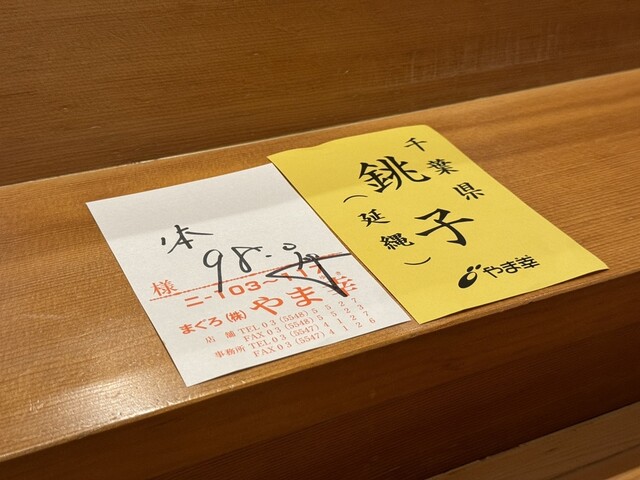 本 98.0
様
ニ-103~
まぐろ (株) やま幸
店 舗 TEL03 (5548) 5527
FAX03 (5548) 5237
事務所 TEL03 (5547) 4127
FAX03 (5547) 4126
千葉県
銚子
(延縄)
やま幸